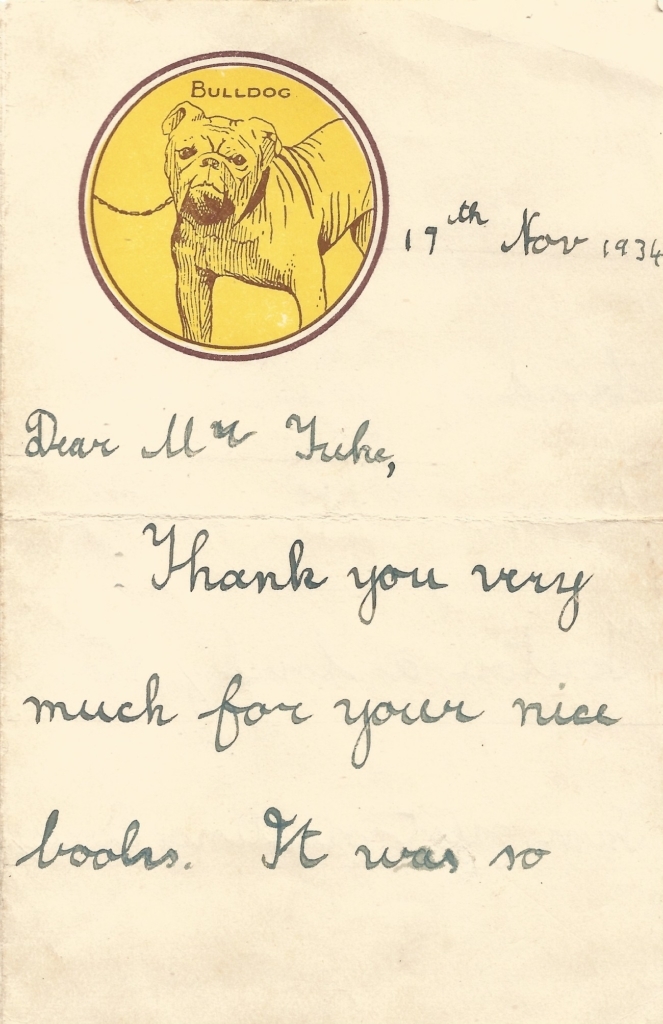 BULLDOG
19th Nov 1934
Dear Mr Tuke,
Thank you very
much for your nice
books. It was so